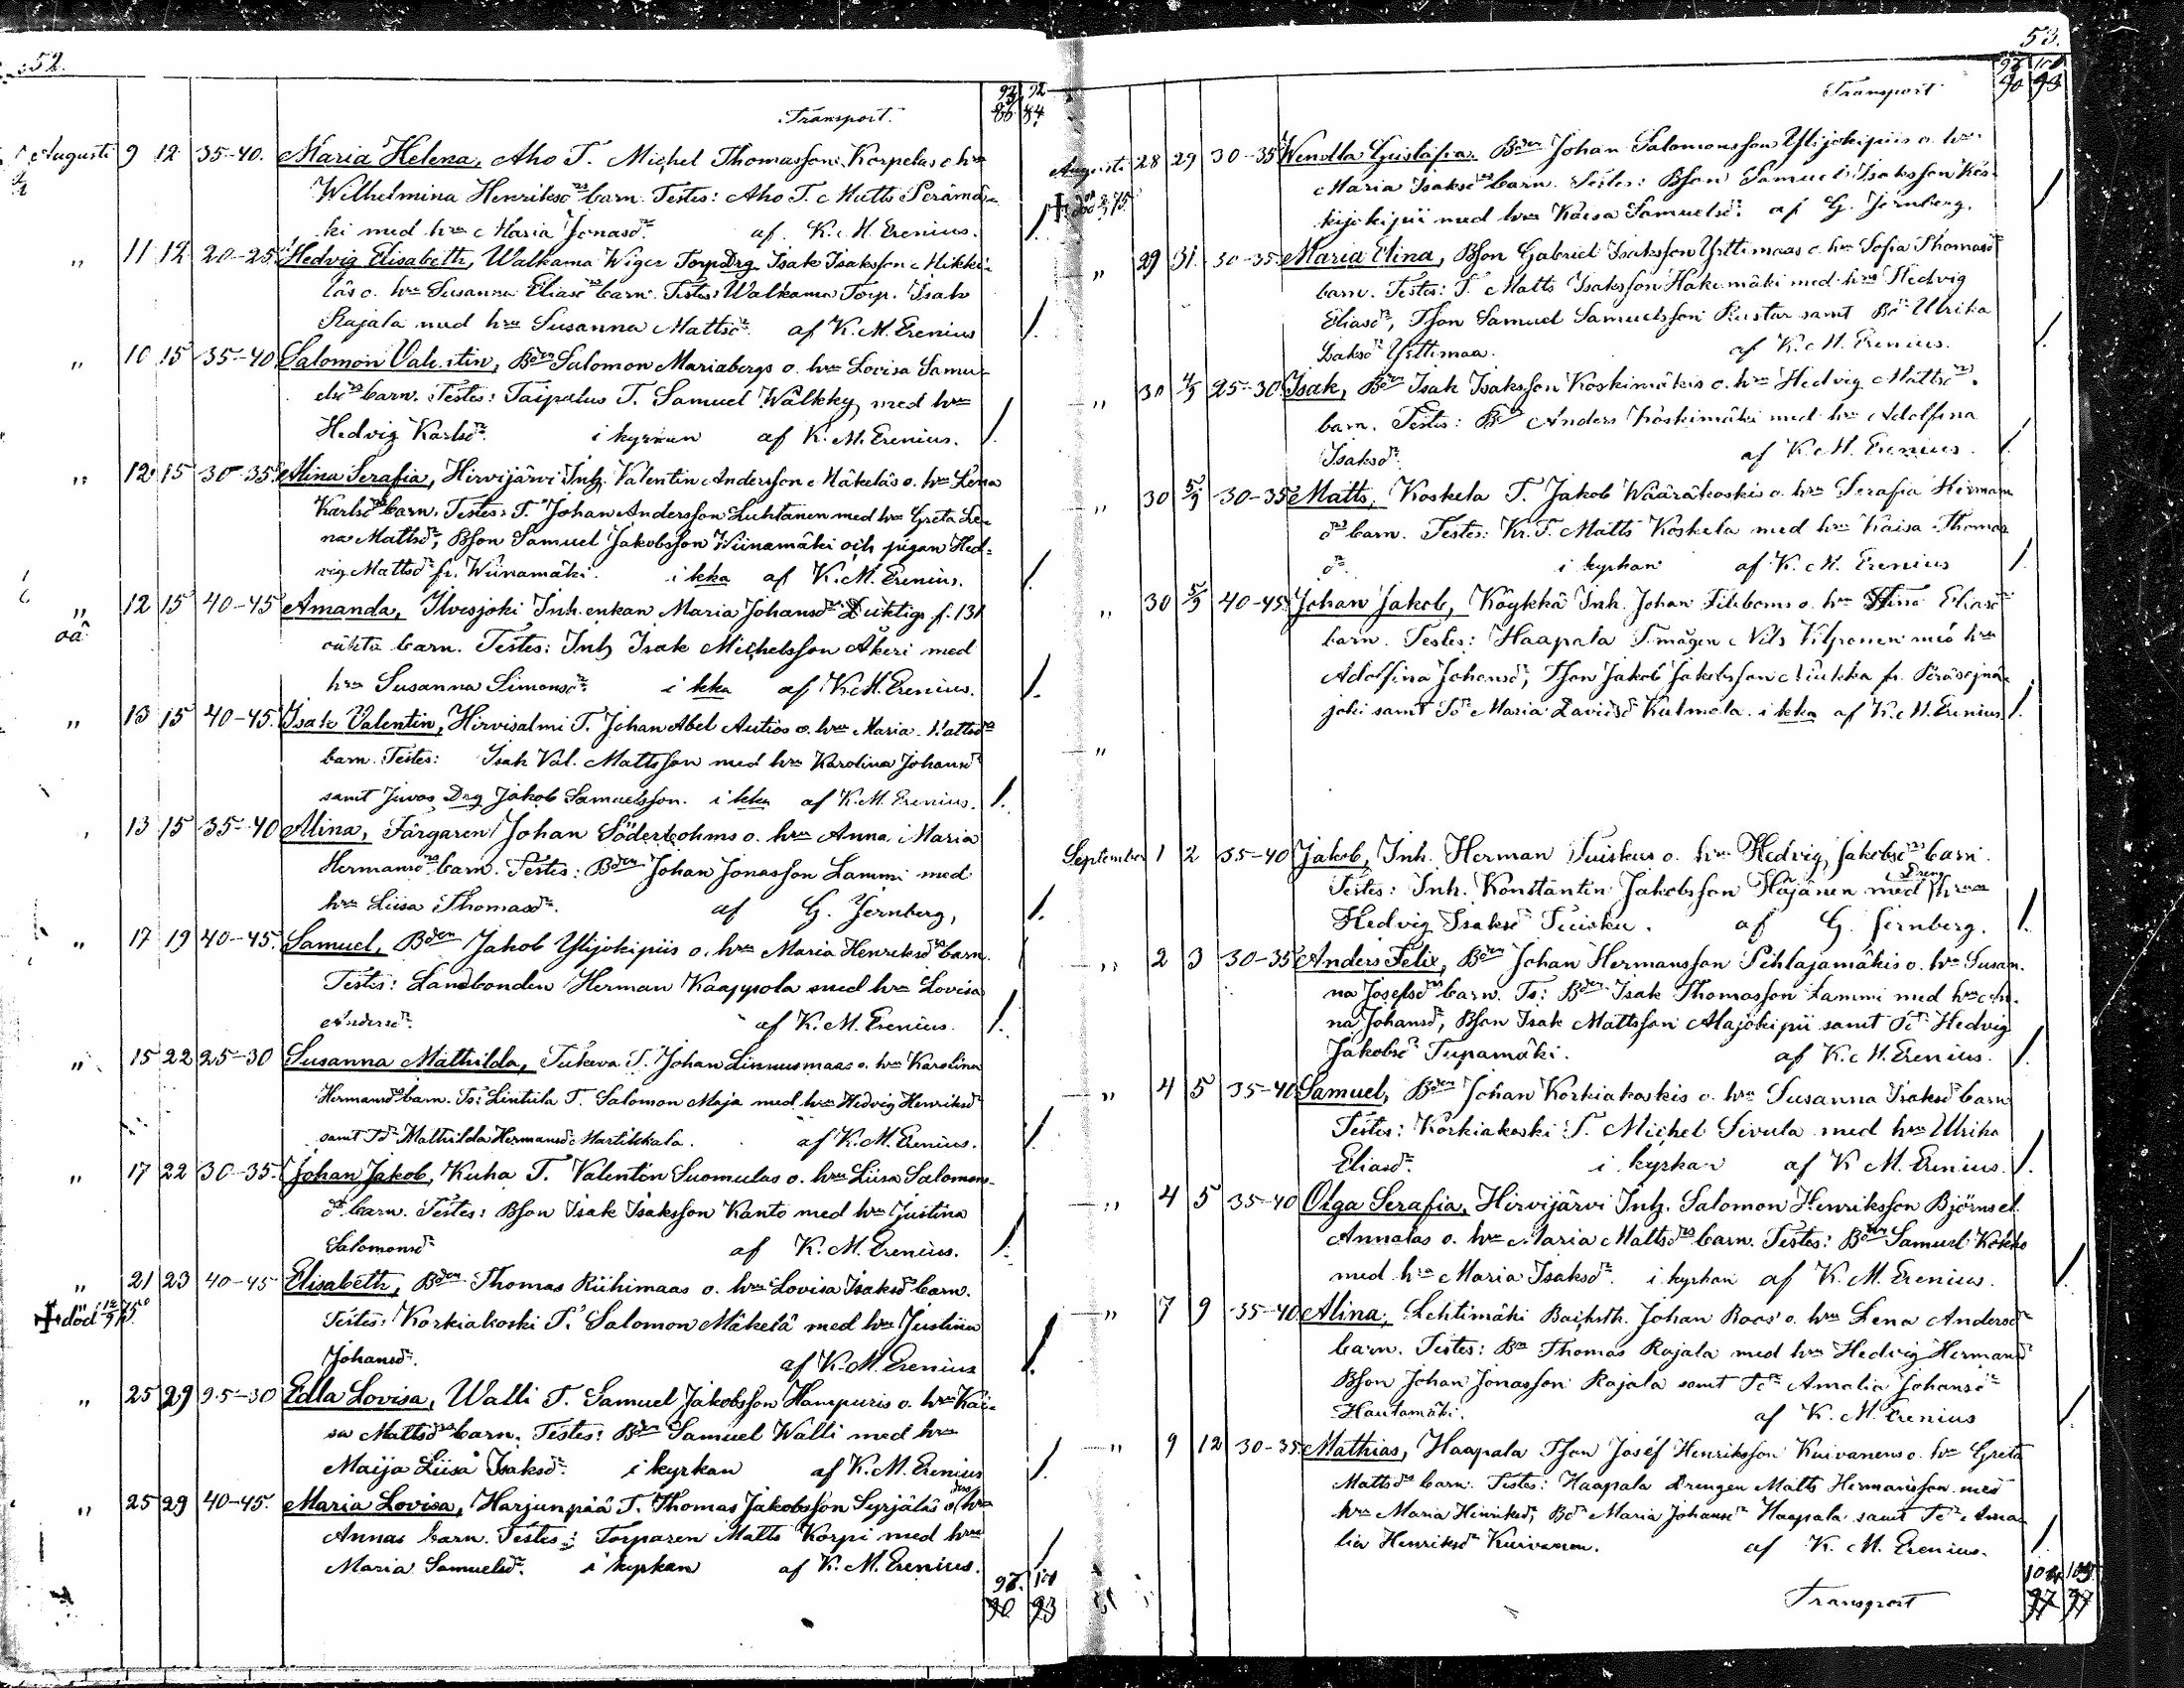 52.
Transport.
93 92
86 84
Augusti 9 12 35-40. Maria Helena, Aho T. Michel Thomasson Korpelas o. hru
Wilhelmina Henriksdrs barn. Testes: Aho T. Matts Perämä-
ki med hru Maria Jonasdr. af K. M. Erenius. /.
" 11 12 20-25 Hedvig Elisabeth, Walkama Wiger Torp Drg Isak Isaksson Mikke-
läs o. hru Susanna Eliasdrs barn. Testes: Walkama Torp. Isak
Rajala med hru Susanna Mattsdr. af K. M. Erenius /.
" 10 15 35-40 Salomon Valentin, Bden Salomon Mariabergs o. hru Lovisa Samu-
elsdrs barn. Testes: Taipalus T. Samuel Wälkky med hru
Hedvig Karlsdr. i kyrkan af K. M. Erenius. /.
" 12 15 30-35 Alina Serafia, Hirvijärvi Inh. Valentin Andersson Mäkeläs o. hru Lena
Karlsdrs barn. Testes: T. Johan Andersson Luhtanen med hru Greta Le-
na Mattsdr, Bson Samuel Jakobsson Wiinamäki och pigan Hed-
vig Mattsdr fr. Wiinamäki. i kka af K. M. Erenius. /.
" 12 15 40-45 Amanda, Ilvesjoki Inh. enkan Maria Johansdr Duktigs f. 131
oäkta barn. Testes: Inh Isak Michelsson Åkeri med
oä
hru Susanna Simonsdr. i kka af K. M. Erenius. /.
" 13 15 40-45. Isak Valentin, Hirvisalmi T. Johan Abel Autios o. hru Maria Mattsdrs
barn. Testes: Isak Val. Mattsson med hru Karolina Johansdr
samt Juvas Drg Jakob Samuelsson. i kka af K. M. Erenius. /.
13 15 35-40 Alina, Färgaren Johan Söderbohms o. hru Anna Maria
Hermansdrs barn. Testes: Bden Johan Jonasson Lammi med
hru Liisa Thomasdr. af G. Jernberg, /.
" 17 19 40-45. Samuel, Bden Jakob Ylijokipiis o. hru Maria Henriksdrs barn.
Testes: Landbonden Herman Kaappola med hru Lovisa
Andersdr. af K. M. Erenius. /.
" 15 22 25-30 Susanna Mathilda, Tukeva T. Johan Linnusmaas o. hru Karolina
Hermansdrs barn. Ts: Lintula T. Salomon Maja med hru Hedvig Henriksdr
samt Tdr Mathilda Hermansdr Martikkala. af K. M. Erenius. /.
" 17 22 30-35. Johan Jakob, Kuha T. Valentin Suomulas o. hru Liisa Salomons-
drs barn. Testes: Bson Isak Isaksson Kanto med hru Justina
Salomonsdr af K. M. Erenius. /.
" 21 23 40-45 Elisabeth, Bden Thomas Riihimaas o. hru Lovisa Isaksdrs barn.
död 12/9 75.
Testes: Korkiakoski T. Salomon Mäkelä med hru Justina
Johansdr. af K. M. Erenius /.
" 25 29 25-30 Edla Lovisa, Walli T. Samuel Jakobsson Hampuris o. hru Kai-
sa Mattsdrs barn. Testes: Bden Samuel Walli med hru
Maija Liisa Isaksdr. i kyrkan af K. M. Erenius /.
" 25 29 40-45. Maria Lovisa, Harjunpää T. Thomas Jakobsson Syrjäläs o. dess hru
Annas barn. Testes: Torparen Matts Korpi med hru
Maria Samuelsdr. i kyrkan af K. M. Erenius. /
97. 101
90. 93
53.
Transport
97 101
90 93
Augusti 28 29 30-35 Wendla Gustafva. Bden Johan Salomonsson Ylijokipiis o. hru
Maria Isaksdrs barn. Testes: Bson Samuel Isaksson Kes-
död 75.
kijokipii med hru Kaisa Samuelsdr. af G. Jernberg. /
" 29 31. 30-35. Maria Elina, Bson Gabriel Isaksson Yrttimaas o. hru Sofia Thomasdrs
barn. Testes: T. Matts Isaksson Hakomäki med hru Hedvig
Eliasdr, Tson Samuel Samuelsson Rustar samt Bdr Ulrika
Isaksdr Yrttimaa. af K. M. Erenius. /.
" 30 4/9 25-30. Isak, Bden Isak Isaksson Koskimäkis o. hru Hedvig Mattsdrs.
barn. Testes: Bd Anders Koskimäki med hru Adolfina
Isaksdr. af K. M. Erenius. /.
" 30 5/9 30-35 Matts, Koskela T. Jakob Wääräkoskis o. hru Serafia Herman
drs barn. Testes: Kr. T. Matts Koskela med hru Kaisa Thomas
dr. i kyrkan af K. M. Erenius /.
" 30 5/9 40-45. Johan Jakob, Köykkä Inh. Johan Filbboms o. hru Stina Eliasdrs
barn. Testes: Haapala T. mågen Nils Vilponen med hru
Adolfina Johansdr, Tson Jakob Jakobsson Niukka fr. Peräsejnä-
joki samt Tdr Maria Davidsdr Kulmala. i kka af K. M. Erenius /.
"
September 1 2 35-40 Jakob, Inh. Herman Tuiskus o. hru Hedvig Jakobsdrs barn.
Testes: Inh. Konstantin Jakobsson Hajänen med Dreng hrun
Hedvig Isaksdr Tuisku. af G. Jernberg. /.
" 2 3 30-35 Anders Felix, Bden Johan Hermansson Pihlajamäkis o. hru Susan-
na Josefsdrs barn. Ts: Bden Isak Thomasson Lammi med hru An-
na Johansdr, Bson Isak Mattsson Alajokipii samt Bdr Hedvig
Jakobsdr Tupamäki. af K. M. Erenius. /.
" 4 5 35-40 Samuel, Bden Johan Korkiakoskis o. hru Susanna Isaksdrs barn
Testes: Korkiakoski T. Michel Sivula med hru Ulrika
Eliasdr. i kyrkan af K M. Erenius. /.
" 4 5 35-40 Olga Serafia, Hirvijärvi Inh. Salomon Henriksson Björns el.
Annalas o. hru Maria Mattsdrs barn. Testes: Bden Samuel Koskko
med hru Maria Isaksdr. i kyrkan af K. M. Erenius. /.
" 7 9 35-40 Alina, Lehtimäki Johan Roos' o. hru Lena Andersdrs
barn. Testes: Bn Thomas Rajala med hru Hedvig Hermansdr
Bson Johan Jonasson Rajala samt Tdr Amalia Johansdr
Hautamäki. af K. M. Erenius /
" 9 12 30-35 Mathias, Haapala Tson Josef Henriksson Kuivanens o. hru Greta
Mattsdrs barn. Testes: Haapala Drengen Matts Hermansson med
hru Maria Henriksdr, Bdr Maria Johansdr Haapala samt Tdr Ama-
lia Henriksdr Kuivanen. af K. M. Erenius. /.
Transport
104 109
97 97